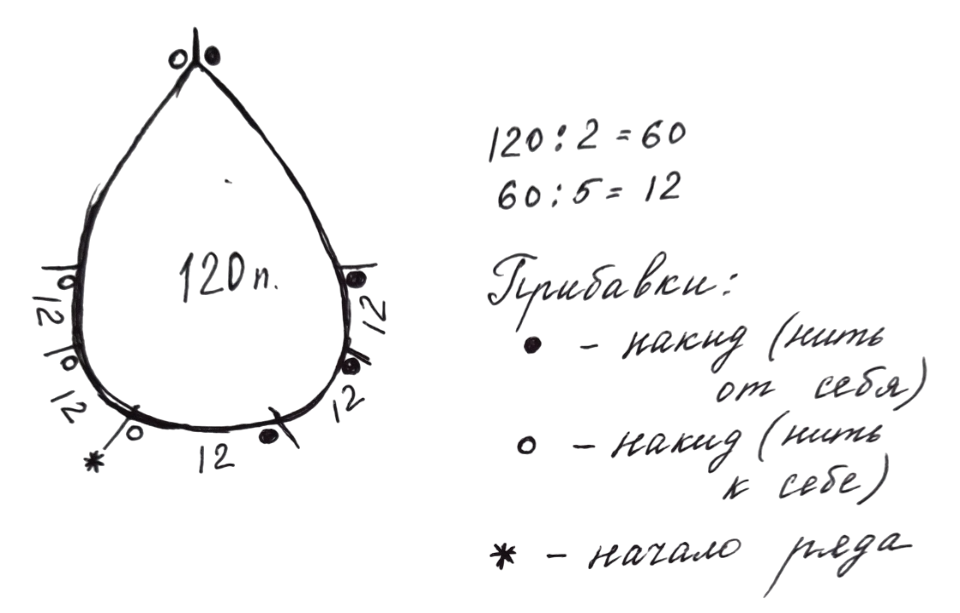 120 п.
12
12
12
12
12
*
120 : 2 = 60
60 : 5 = 12
Прибавки:
● – накид (нить
от себя)
○ – накид (нить
к себе)
* – начало ряда